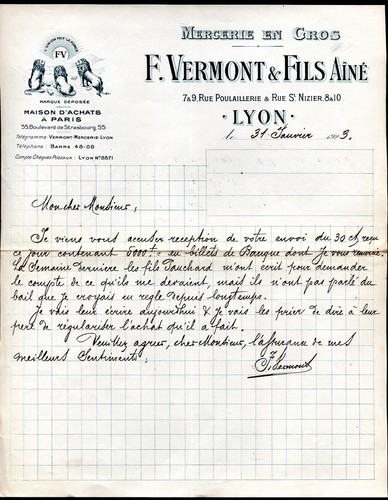 MERCERIE EN GROS
F. VERMONT & FILS AÎNÉ
7&9, RUE POULAILLERIE & RUE ST NIZIER, 8&10
LYON
L'UNION FAIT LA FORCE
FV
MARQUE DÉPOSÉE
MAISON D'ACHATS
À PARIS
55, Boulevard de Strasbourg, 55
Télégramme: VERMONT-MERCERIE-LYON
Téléphone: BARRE 48-08
Compte Chèques Postaux: LYON N° 8871
le 31 Janvier 1923.
Mon cher Monsieur,
Je viens vous accuser reception de votre envoi du 30 ct, reçu
ce jour contenant 5000 f en billets de Banque dont je vous remercie
La Semaine dernière les fils Touchard m'ont écrit pour demander
le compte de ce qu'ils me devaient, mais ils n'ont pas parlé du
bail que je croyais en regle depuis longtemps.
Je vais leur ecrire aujourd'hui & je vais les prier de dire à leur
pere de régulariser l'achat qu'il a fait.
Veuillez agreer, cher Monsieur, l'assurance de mes
meilleurs Sentiments,
F. Vermont